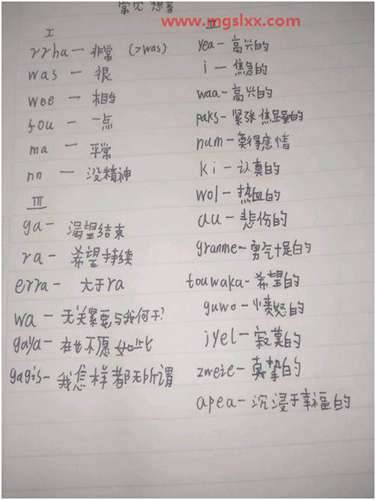 常见想音
www.mgslxx.com
I
rrha — 非常 (>was)
was — 很
wee — 相当
fou — 一点
ma — 平常
nn — 没精神
III
ga — 渴望结束
ra — 希望持续
erra — 大于ra
wa — 无关紧要与我何干?
gaya — 在也不愿如此
gagis — 我怎样都无所谓
II
yea — 高兴的
i — 焦急的
waa — 高兴的
paks — 紧张焦虑的
num — 莫得感情
ki — 认真的
wol — 热血的
au — 悲伤的
granme — 勇气十足的
touwaka — 希望的
guwo — 愤怒的
iyel — 寂寞的
zweie — 真挚的
apea — 沉浸于幸福的